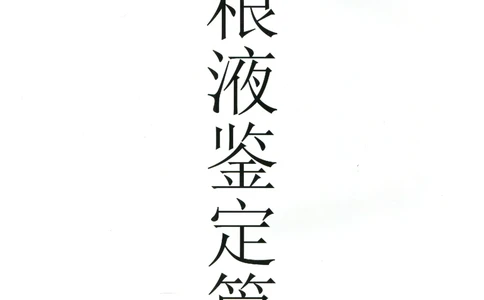 根液鉴定第